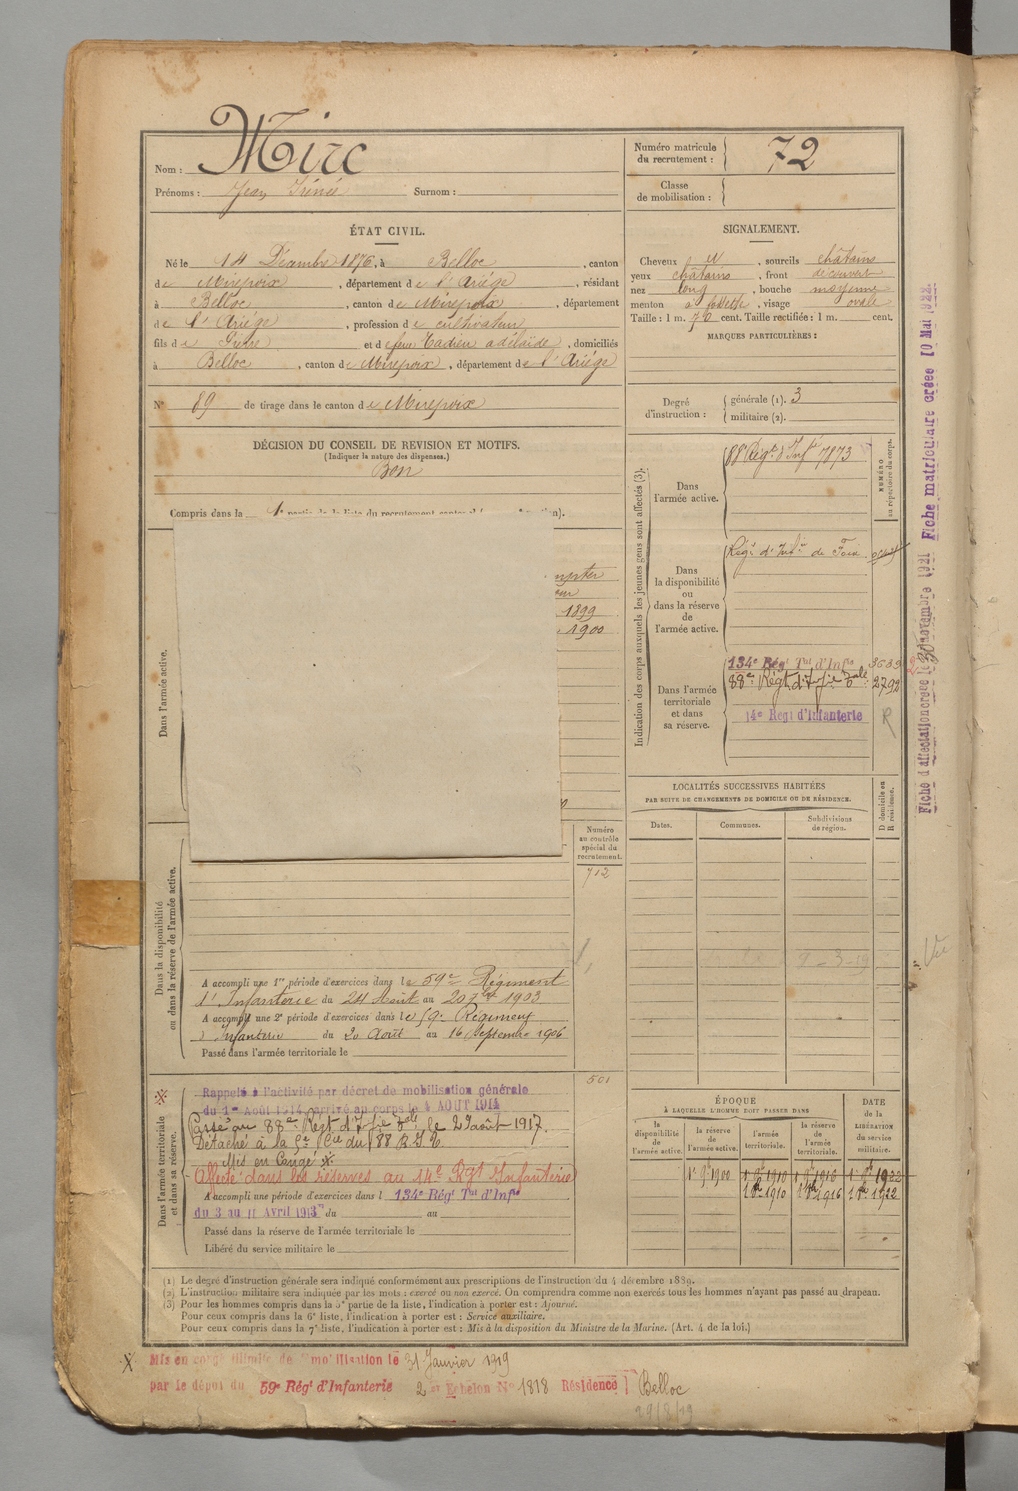 Nom : Mirc
Prénoms : Jean Irénée Surnom :
Numéro matricule du recrutement : 72
Classe de mobilisation :
ÉTAT CIVIL.
Né le 14 Décembre 1876, à Belloc, canton
de Mirepoix, département de l'Ariège, résidant
à Belloc, canton de Mirepoix, département
de l'Ariège, profession de cultivateur
fils de Pierre et de feue Cadieu adélaïde, domiciliés
à Belloc, canton de Mirepoix, département de l'Ariége
N° 89 de tirage dans le canton de Mirepoix
DÉCISION DU CONSEIL DE REVISION ET MOTIFS.
(Indiquer la nature des dispenses.)
Bon
Compris dans la 1e partie de la liste du recrutement
SIGNALEMENT.
Cheveux et, sourcils châtains
yeux châtains, front découvert
nez long, bouche moyenne
menton à fossette, visage ovale
Taille : 1 m. 70 cent. Taille rectifiée : 1 m. cent.
MARQUES PARTICULIÈRES :
Degré d'instruction : générale (1). 3
militaire (2).
Indication des corps auxquels les jeunes gens sont affectés (3).
NUMÉRO au répertoire du corps.
Dans l'armée active.
88e Régt d'Infie 7873
Dans la disponibilité ou dans la réserve de l'armée active.
Régt d'Infie de Foix
Dans l'armée territoriale et dans sa réserve.
134e Régt Tal d'Infie
88e Régt d'Infie Tale 2792
14e Régt d'Infanterie R
Dans l'armée active.
1899
1900
LOCALITÉS SUCCESSIVES HABITÉES
PAR SUITE DE CHANGEMENTS DE DOMICILE OU DE RÉSIDENCE.
Dates. Communes. Subdivisions de région. D domicile ou R résidence.
9-3-19
Numéro au contrôle spécial du recrutement.
712
Dans la disponibilité ou dans la réserve de l'armée active.
A accompli une 1re période d'exercices dans le 59e Régiment
d'Infanterie du 24 Août au 20 7bre 1903
A accompli une 2e période d'exercices dans le 59e Régiment
d'Infanterie du 20 Août au 16 Septembre 1906
Passé dans l'armée territoriale le
501
Dans l'armée territoriale et dans sa réserve.
Rappelé à l'activité par décret de mobilisation générale
du 1er Août 1914, arrivé au corps le 4 AOUT 1914
Passé au 88e Régt d'Infie Tale le 2 août 1917.
Détaché à la 5e Cie du 88 R.I.T.
Mis en Congé
Affecté dans les réserves au 14e Rgt Infanterie
A accompli une période d'exercices dans l 134e Régt Tal d'Infie
du 3 au 11 Avril 1913 du au
Passé dans la réserve de l'armée territoriale le
Libéré du service militaire le
ÉPOQUE
À LAQUELLE L'HOMME DOIT PASSER DANS
DATE de la LIBÉRATION du service militaire.
la disponibilité de l'armée active. la réserve de l'armée active. l'armée territoriale. la réserve de l'armée territoriale.
1er 9bre 1900 1er 9bre 1910 1er 9bre 1916 1er 9bre 1922
1er 8bre 1910 1er 8bre 1916 1er 8bre 1922
(1) Le degré d'instruction générale sera indiqué conformément aux prescriptions de l'instruction du 4 décembre 1889.
(2) L'instruction militaire sera indiquée par les mots : exercé ou non exercé. On comprendra comme non exercés tous les hommes n'ayant pas passé au drapeau.
(3) Pour les hommes compris dans la 5e partie de la liste, l'indication à porter est : Ajourné.
Pour ceux compris dans la 6e liste, l'indication à porter est : Service auxiliaire.
Pour ceux compris dans la 7e liste, l'indication à porter est : Mis à la disposition du Ministre de la Marine. (Art. 4 de la loi.)
Mis en congé illimité de démobilisation le 31 Janvier 1919
par le dépôt du 59e Régt d'Infanterie 2 Echelon N° 1818 Résidence Belloc
29/8/19
Fiche d'affectation créée le 30 Novembre 1921 Fiche matriculaire créée 10 Mai 1922.
Vu